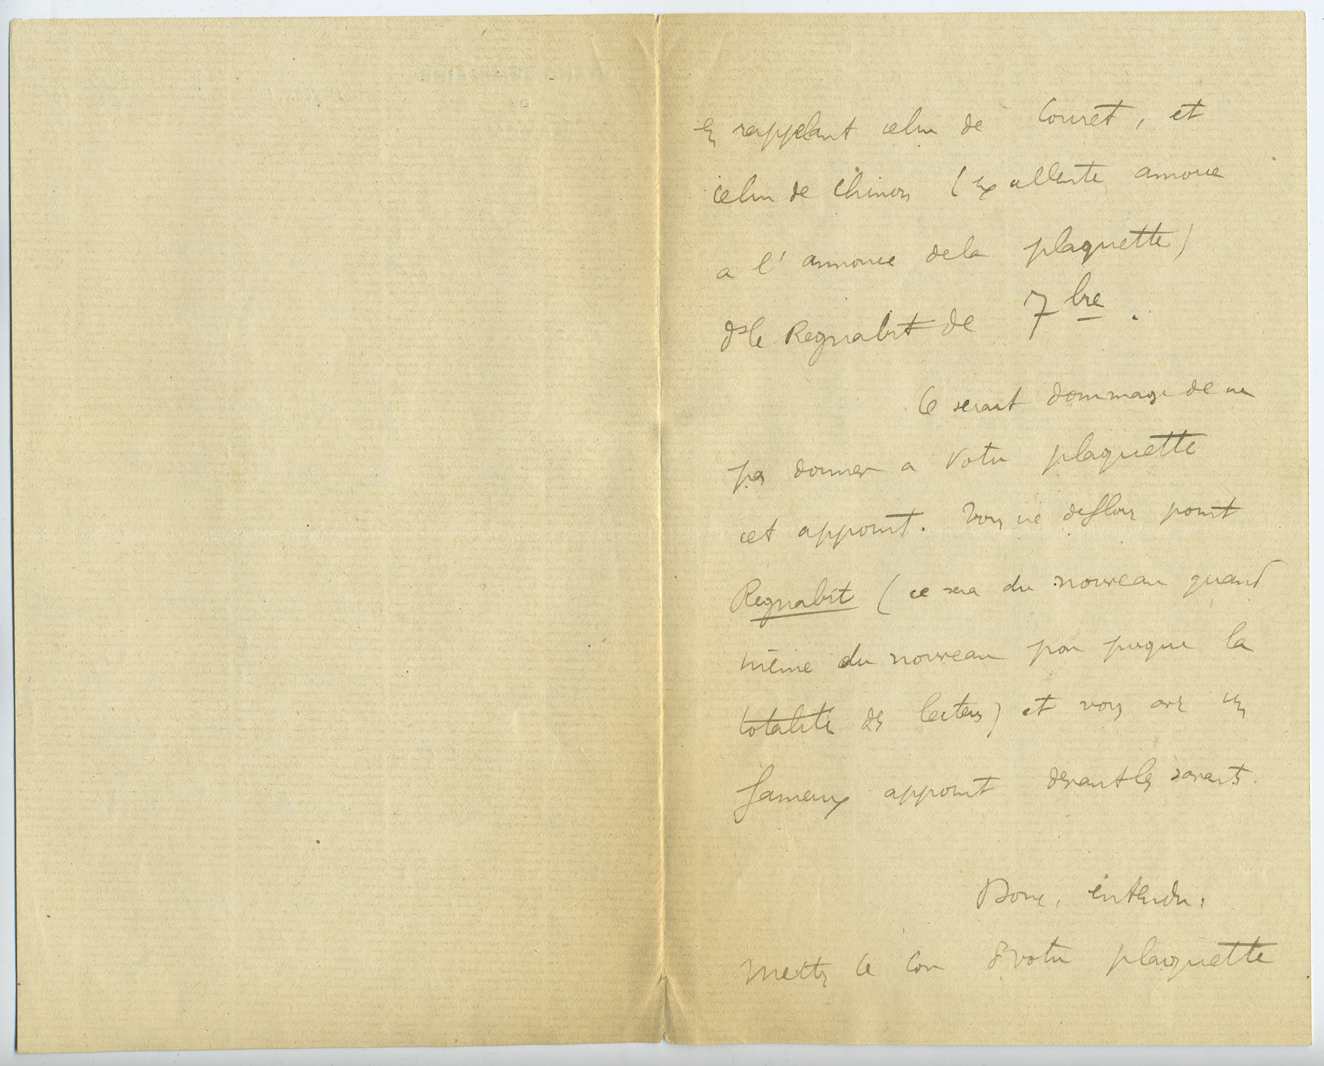 en rappelant celui de Couret, et
celui de Chinon (excellente amorce
a l'annonce de la plaquette)
ds le Regnabit de 7bre.
Ce serait dommage de ne
pas donner a votre plaquette
cet appoint. Vous ne deflorez point
Regnabit (ce sera du nouveau quand
même du nouveau pour presque la
totalité des lecteurs) et vous avez un
fameux appoint devant les savants.
Donc, entendu.
Mettez ce votre plaquette